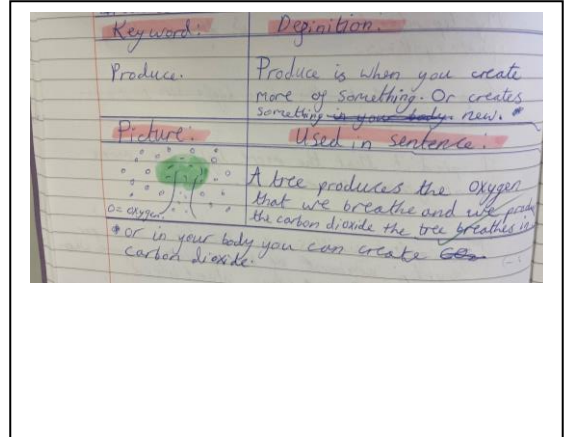 Keyword:
Definition.
Produce.
Produce is when you create
more of something. Or creates
something in your body. new. *
Picture:
Used in sentence:
O = oxygen.
A tree produces the oxygen
that we breathe and we produ
the carbon dioxide the tree breathes in
* or in your body you can create CO2
carbon dioxide.